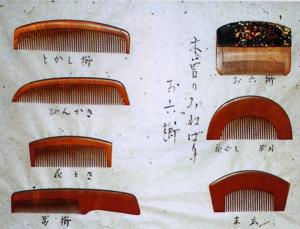 木曽のみねばり
お六櫛
お六櫛
とかし櫛
びんかき
花ぐし
花とき
男櫛